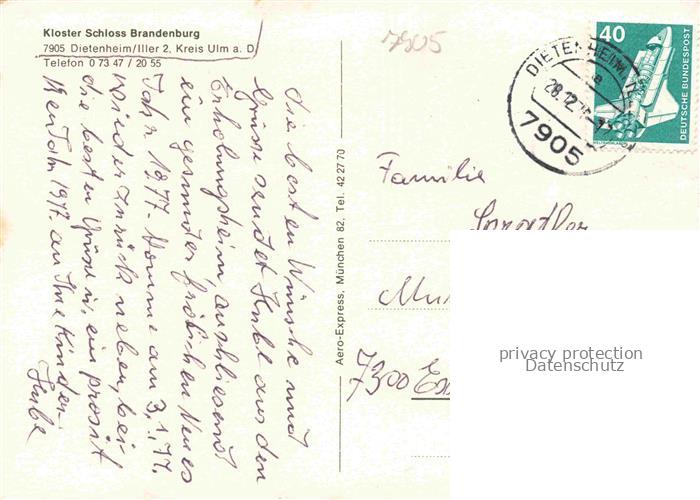 Kloster Schloss Brandenburg
7905 Dietenheim/Iller 2, Kreis Ulm a. D
Telefon 0 73 47 / 20 55
die besten Wünsche und
Grüsse sendet Hube aus den
Erholungsheim, anschliesend
ein gesundes fröhliches Neues
Jahr 1977. Komme am 3.1.77.
wieder zurück neben bei
die besten Grüse u. ein prosit
Neujahr 1977. an Ihre Kinder
Hube
Aero-Express, München 82, Tel. 42 27 70
7905
DIETENHEIM
28.12.
7905
40
DEUTSCHE BUNDESPOST
Familie
7300
privacy protection
Datenschutz